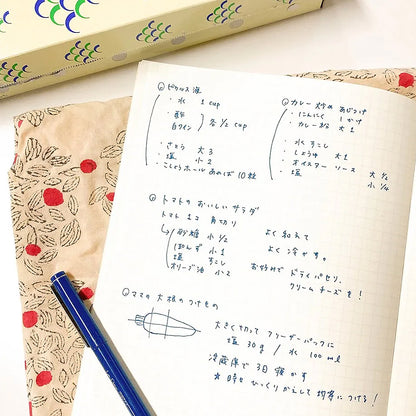 ピクルス液
・水 1 cup
・酢
白ワイン 各 1/2 cup
・さとう 大 3
・塩 小 2
・こしょうホール あれば 10粒
カレー炒め あじつけ
・にんにく 1かけ
・カレー粉 大1
・水 すこし
・しょうゆ 大1
・オイスターソース 大 1/2
・塩 小 1/4
トマトのおいしいサラダ
トマト 1コ 角切り
砂糖 小 1/2 よく和えて
ぽんず 小 1 よく冷やす。
塩 すこし
オリーブ油 小2 お好みで ドライパセリ、
クリームチーズを!
ママの大根のつけもの
大きく切って フリーザーパックに
塩 30g / 水 100ml
冷蔵庫で 3日 寝かす
☆ 時々 ひっくりかえして 均等につける!